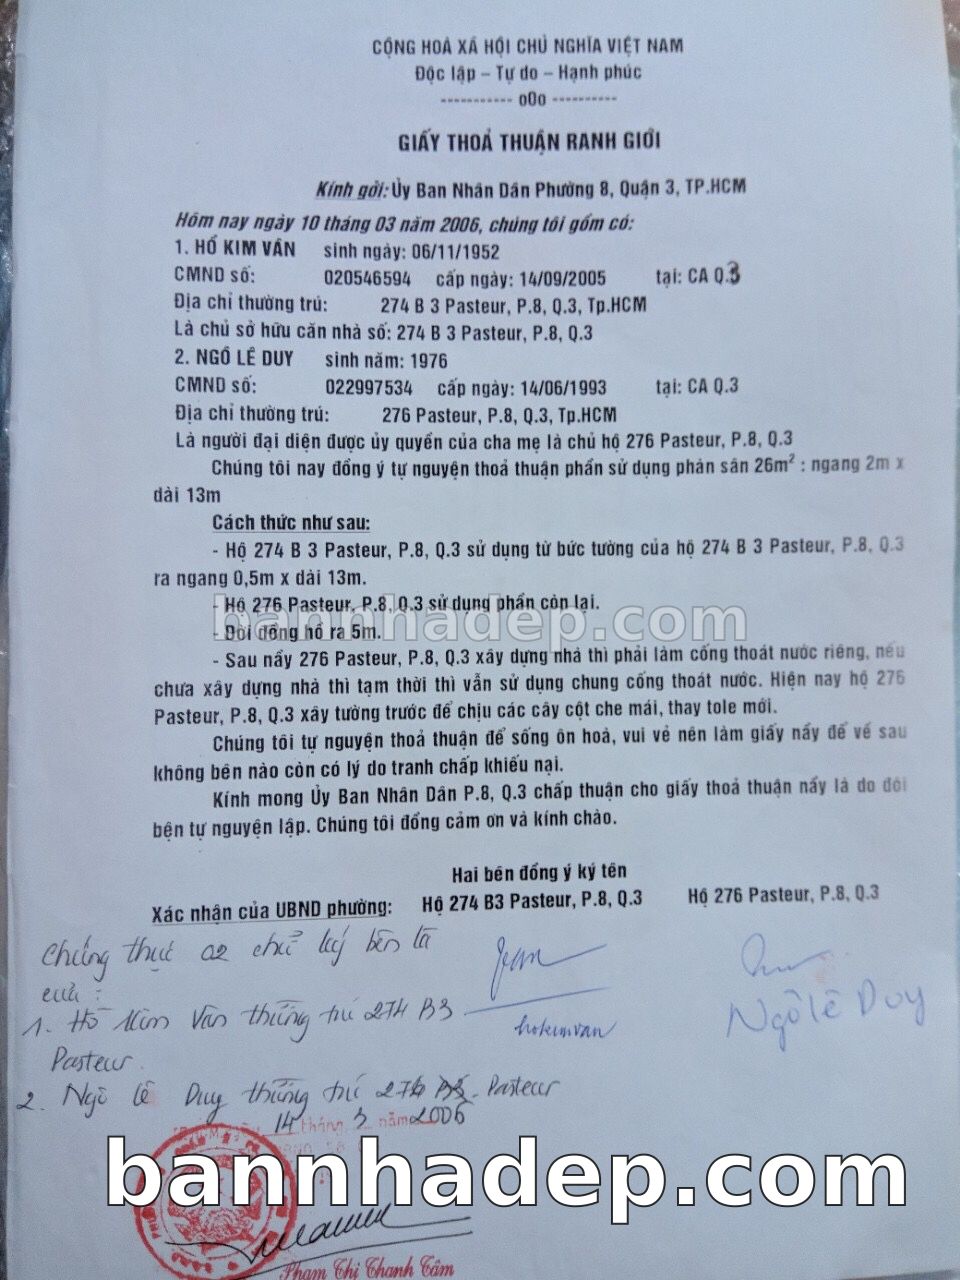 CỘNG HOÀ XÃ HỘI CHỦ NGHĨA VIỆT NAM
Độc lập – Tự do – Hạnh phúc
----------- o0o ----------
GIẤY THOẢ THUẬN RANH GIỚI
Kính gởi: Ủy Ban Nhân Dân Phường 8, Quận 3, TP.HCM
Hôm nay ngày 10 tháng 03 năm 2006, chúng tôi gồm có:
1. HỒ KIM VÂN sinh ngày: 06/11/1952
CMND số: 020546594 cấp ngày: 14/09/2005 tại: CA Q.3
Địa chỉ thường trú: 274 B 3 Pasteur, P.8, Q.3, Tp.HCM
Là chủ sở hữu căn nhà số: 274 B 3 Pasteur, P.8, Q.3
2. NGÔ LÊ DUY sinh năm: 1976
CMND số: 022997534 cấp ngày: 14/06/1993 tại: CA Q.3
Địa chỉ thường trú: 276 Pasteur, P.8, Q.3, Tp.HCM
Là người đại diện được ủy quyền của cha mẹ là chủ hộ 276 Pasteur, P.8, Q.3
Chúng tôi nay đồng ý tự nguyện thoả thuận phần sử dụng phần sân 26m² : ngang 2m x
dài 13m
Cách thức như sau:
- Hộ 274 B 3 Pasteur, P.8, Q.3 sử dụng từ bức tường của hộ 274 B 3 Pasteur, P.8, Q.3
ra ngang 0,5m x dài 13m.
- Hộ 276 Pasteur, P.8, Q.3 sử dụng phần còn lại.
bannhadep.com
- Dời đồng hồ ra 5m.
- Sau nầy 276 Pasteur, P.8, Q.3 xây dựng nhà thì phải làm cống thoát nước riêng, nếu
chưa xây dựng nhà thì tạm thời thì vẫn sử dụng chung cống thoát nước. Hiện nay hộ 276
Pasteur, P.8, Q.3 xây tường trước để chịu các cây cột che mái, thay tole mới.
Chúng tôi tự nguyện thoả thuận để sống ôn hoà, vui vẻ nên làm giấy nầy để về sau
không bên nào còn có lý do tranh chấp khiếu nại.
Kính mong Ủy Ban Nhân Dân P.8, Q.3 chấp thuận cho giấy thoả thuận nầy là do đôi
bện tự nguyện lập. Chúng tôi đồng cảm ơn và kính chào.
Hai bên đồng ý ký tên
Xác nhận của UBND phường: Hộ 274 B3 Pasteur, P.8, Q.3 Hộ 276 Pasteur, P.8, Q.3
Chứng thực 02 chữ ký bên là
của :
1. Hồ Kim Vân thường trú 274 B3
Pasteur.
hokimvan
Ngô Lê Duy
2. Ngô Lê Duy thường trú 276 Pasteur
14 tháng 3 năm 2006
bannhadep.com
Phạm Thị Thanh Tâm